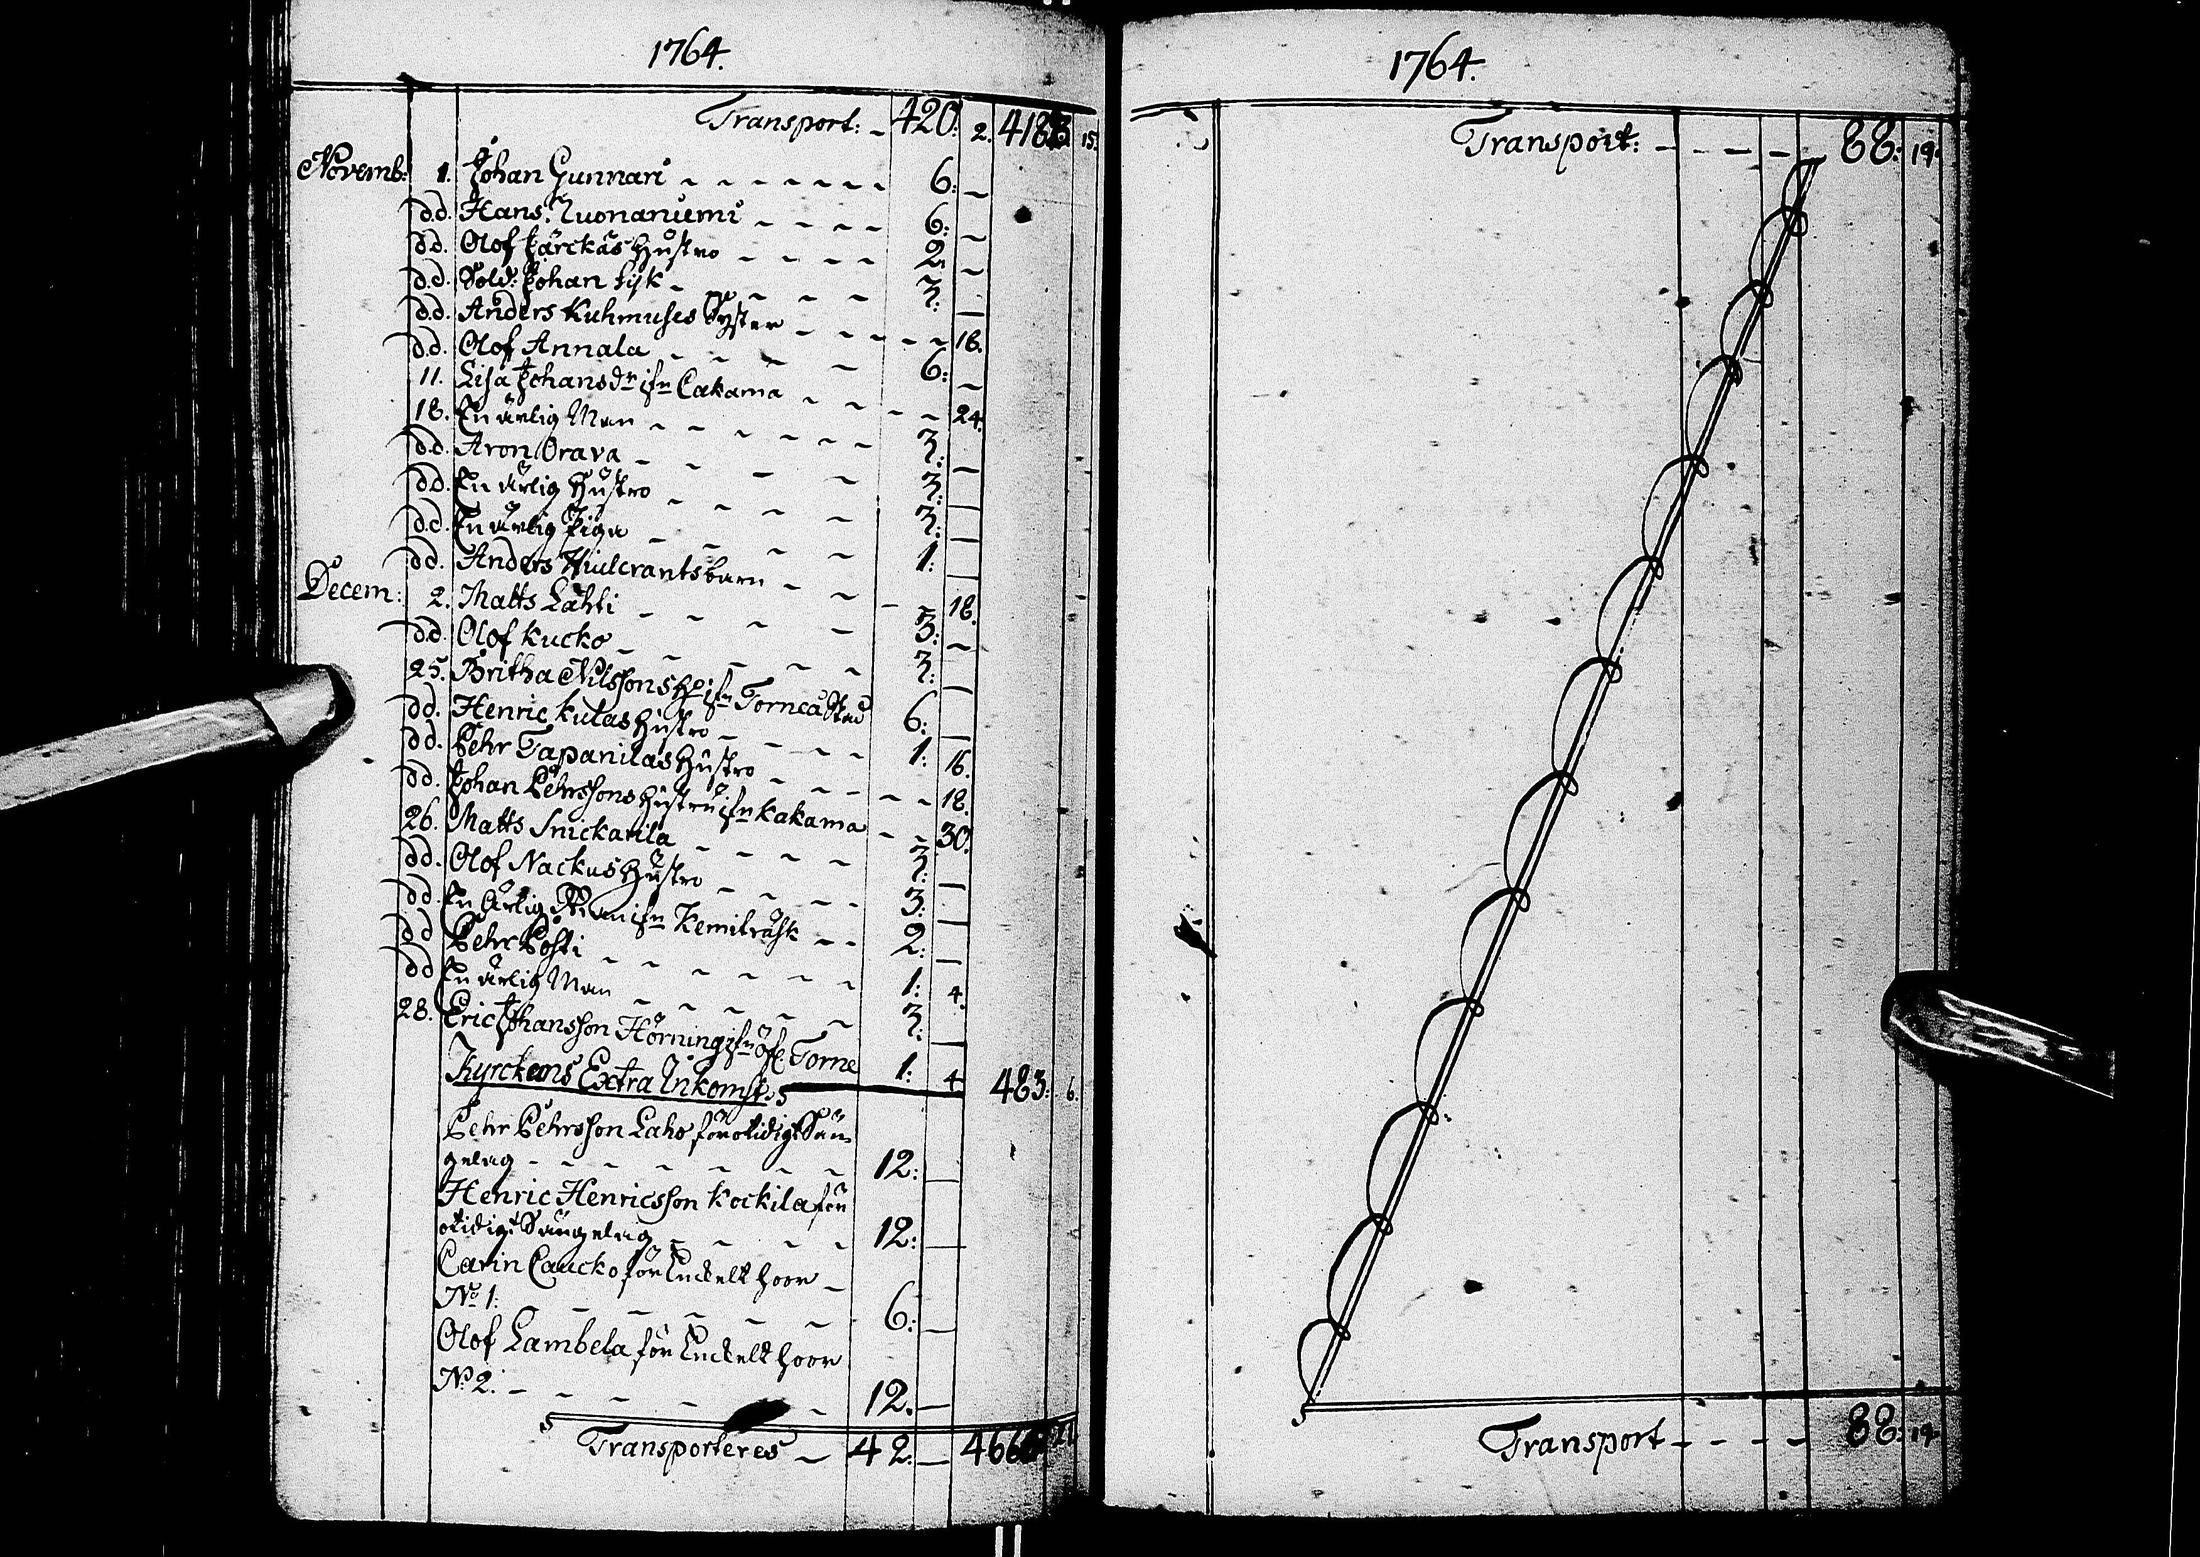 1764.
Transport: 420: 2. 4183 15.
Novemb: 1. Johan Gunnari 6: —
dd. Hans Nuonaniemi 6: —
dd. Olof Järckäs Hustro 2: —
dd. Sold: Johan Lijk 3: —
dd. Anders Kuhmuses Syster 18.
dd. Olof Annala 6: —
11. Lisa Johansdr ifn Cakama 24.
18. En ärlig Man 3: —
dd. Aron Orava 3: —
dd. En ärlig Hustro 3: —
dd. En ärlig Piga 1: —
dd. Anders barn 18.
Decem: 2. Matts Lahti 3: —
dd. Olof Kucko 3: —
25. Britha Nilssons Ho ifn Torneå Stad 6: —
dd. Henric Kutas Hustro 1: 16.
dd. Pehr Tapanilas Hustro 18.
dd. Johan Pehrssons Hustru ifn Kakama 30.
26. Matts Snickarila 3: —
dd. Olof Nackus Hustro 3: —
dd. En Ärlig Man ifn Kemiträsk 2: —
dd Pehr Posti 1: 4.
dd En ärlig Man 3: —
28. Eric Johansson Hörning ifn öfe Torne 1: 4 483: 6.
Kyrckans Extra Inkomst
Pehr Pehrsson Laho för otidigt Sän-
gelag 12: —
Henric Henricsson Kockila för
otidigt Sängelag 12: —
Carin Caucko för Enckelt hoor
No 1: 6: —
Olof Lambela för Enckelt hoor
No 2. 12. —
Transporteres 42: — 466
1764.
Transport: 88: 19.
Transport 88: 19